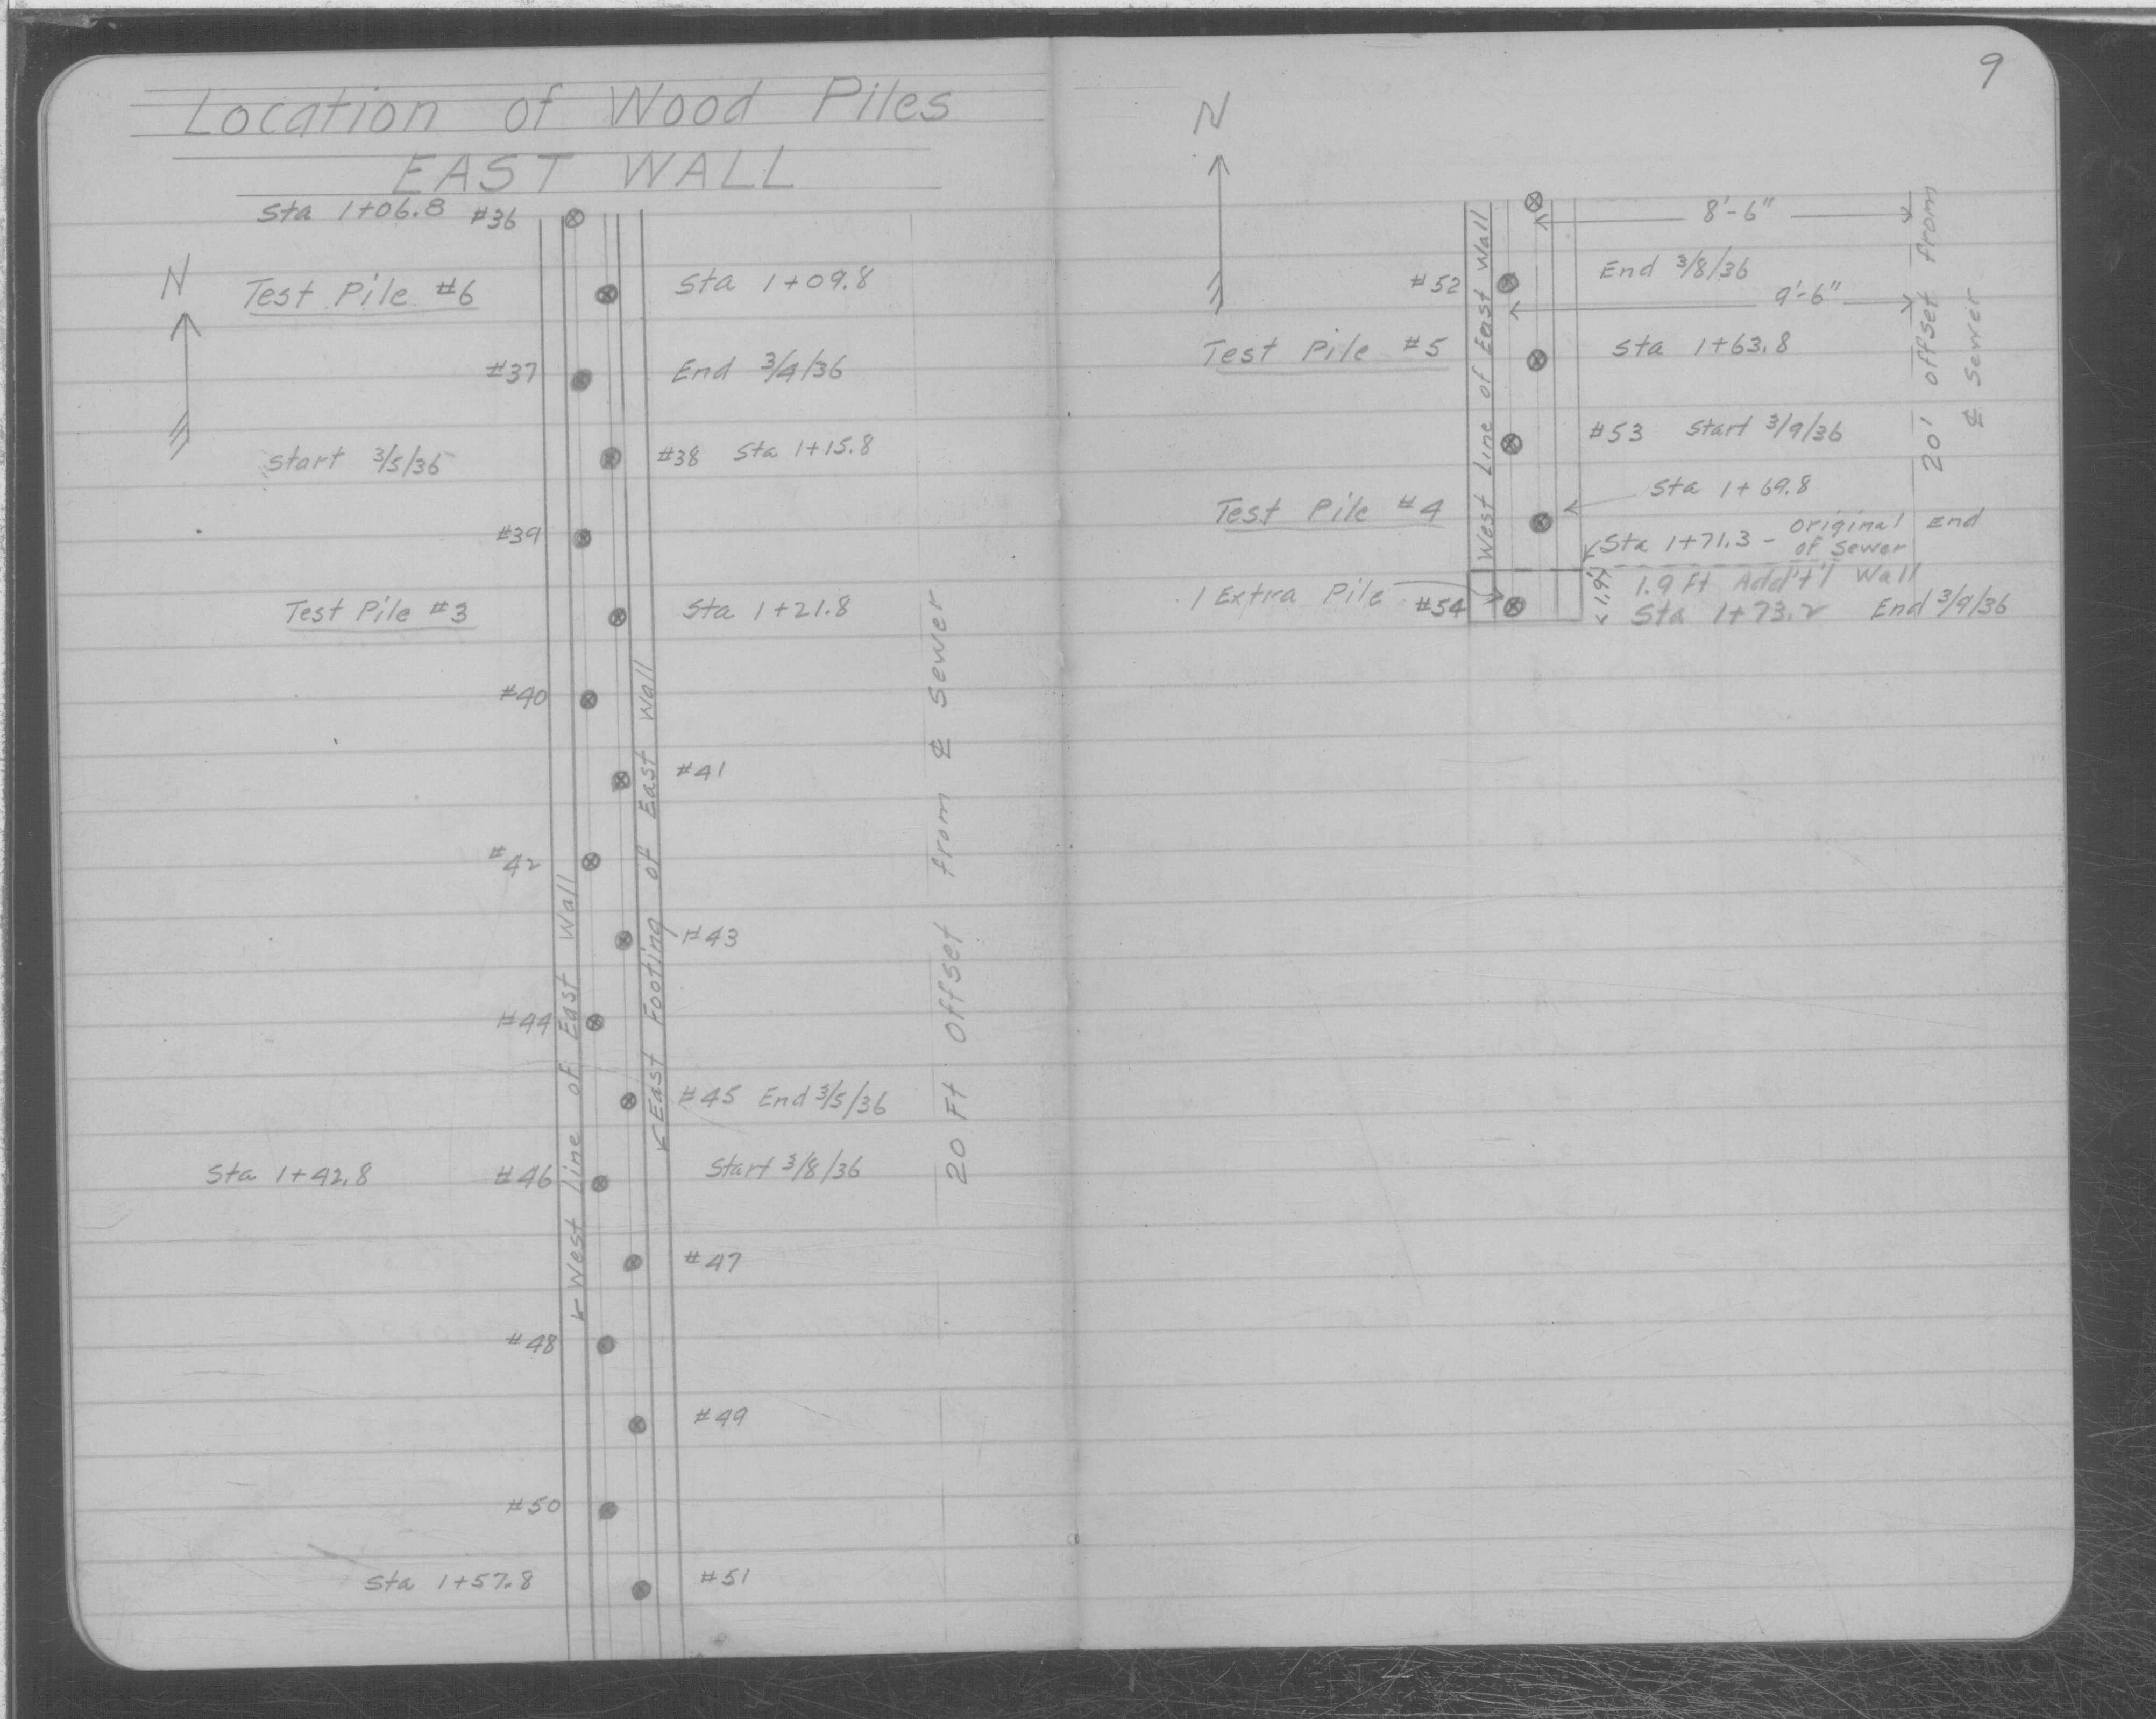 Location of Wood Piles
EAST WALL
Sta 1+06.8 #36
N
Test Pile #6 Sta 1+09.8
#37 End 3/4/36
Start 3/5/36 #38 Sta 1+15.8
#39
Test Pile #3 Sta 1+21.8
#40
#41
#42
#43
#44
#45 End 3/5/36
Sta 1+42.8 #46 Start 3/8/36
#47
#48
#49
#50
Sta 1+57.8 #51
West Line of East Wall
East Footing of East Wall
20 Ft Offset from ℄ Sewer
9
N
8'-6"
#52 End 3/8/36
9'-6"
Test Pile #5 Sta 1+63.8
#53 Start 3/9/36
Sta 1+69.8
Test Pile #4
Sta 1+71.3 - Original End
of Sewer
1.9' 1.9 Ft Add't'l Wall
1 Extra Pile #54 Sta 1+73.2 End 3/9/36
West Line of East Wall
20' offset from
℄ Sewer